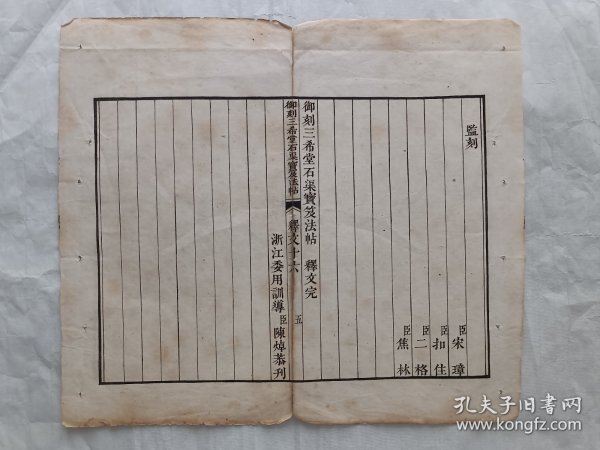 監刻
臣宋璋
臣扣住
臣二格
臣焦林
御刻三希堂石渠寶笈法帖　釋文完
御刻三希堂石渠寶笈法帖　釋文十六　五
浙江委用訓導臣陳焯恭刊
孔夫子旧書网
www.kongfz.com